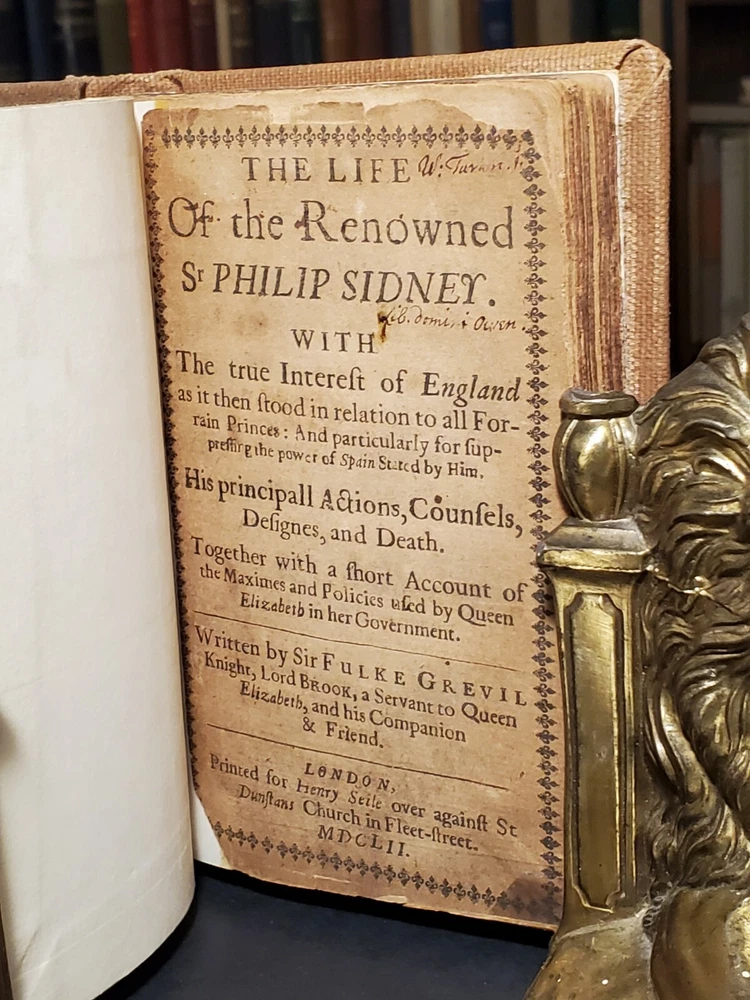 THE LIFE W:
Of the Renowned
Sr PHILIP SIDNEY.
Lib. domini Owen.
WITH
The true Intereſt of England
as it then ſtood in relation to all For-
rain Princes: And particularly for ſup-
preſſing the power of Spain Stated by Him.
His principall Actions, Counſels,
Deſignes, and Death.
Together with a ſhort Account of
the Maximes and Policies uſed by Queen
Elizabeth in her Government.
Written by Sir FULKE GREVIL
Knight, Lord BROOK, a Servant to Queen
Elizabeth, and his Companion
& Friend.
LONDON,
Printed for Henry Seile over againſt St
Dunſtans Church in Fleet-ſtreet.
MDCLII.